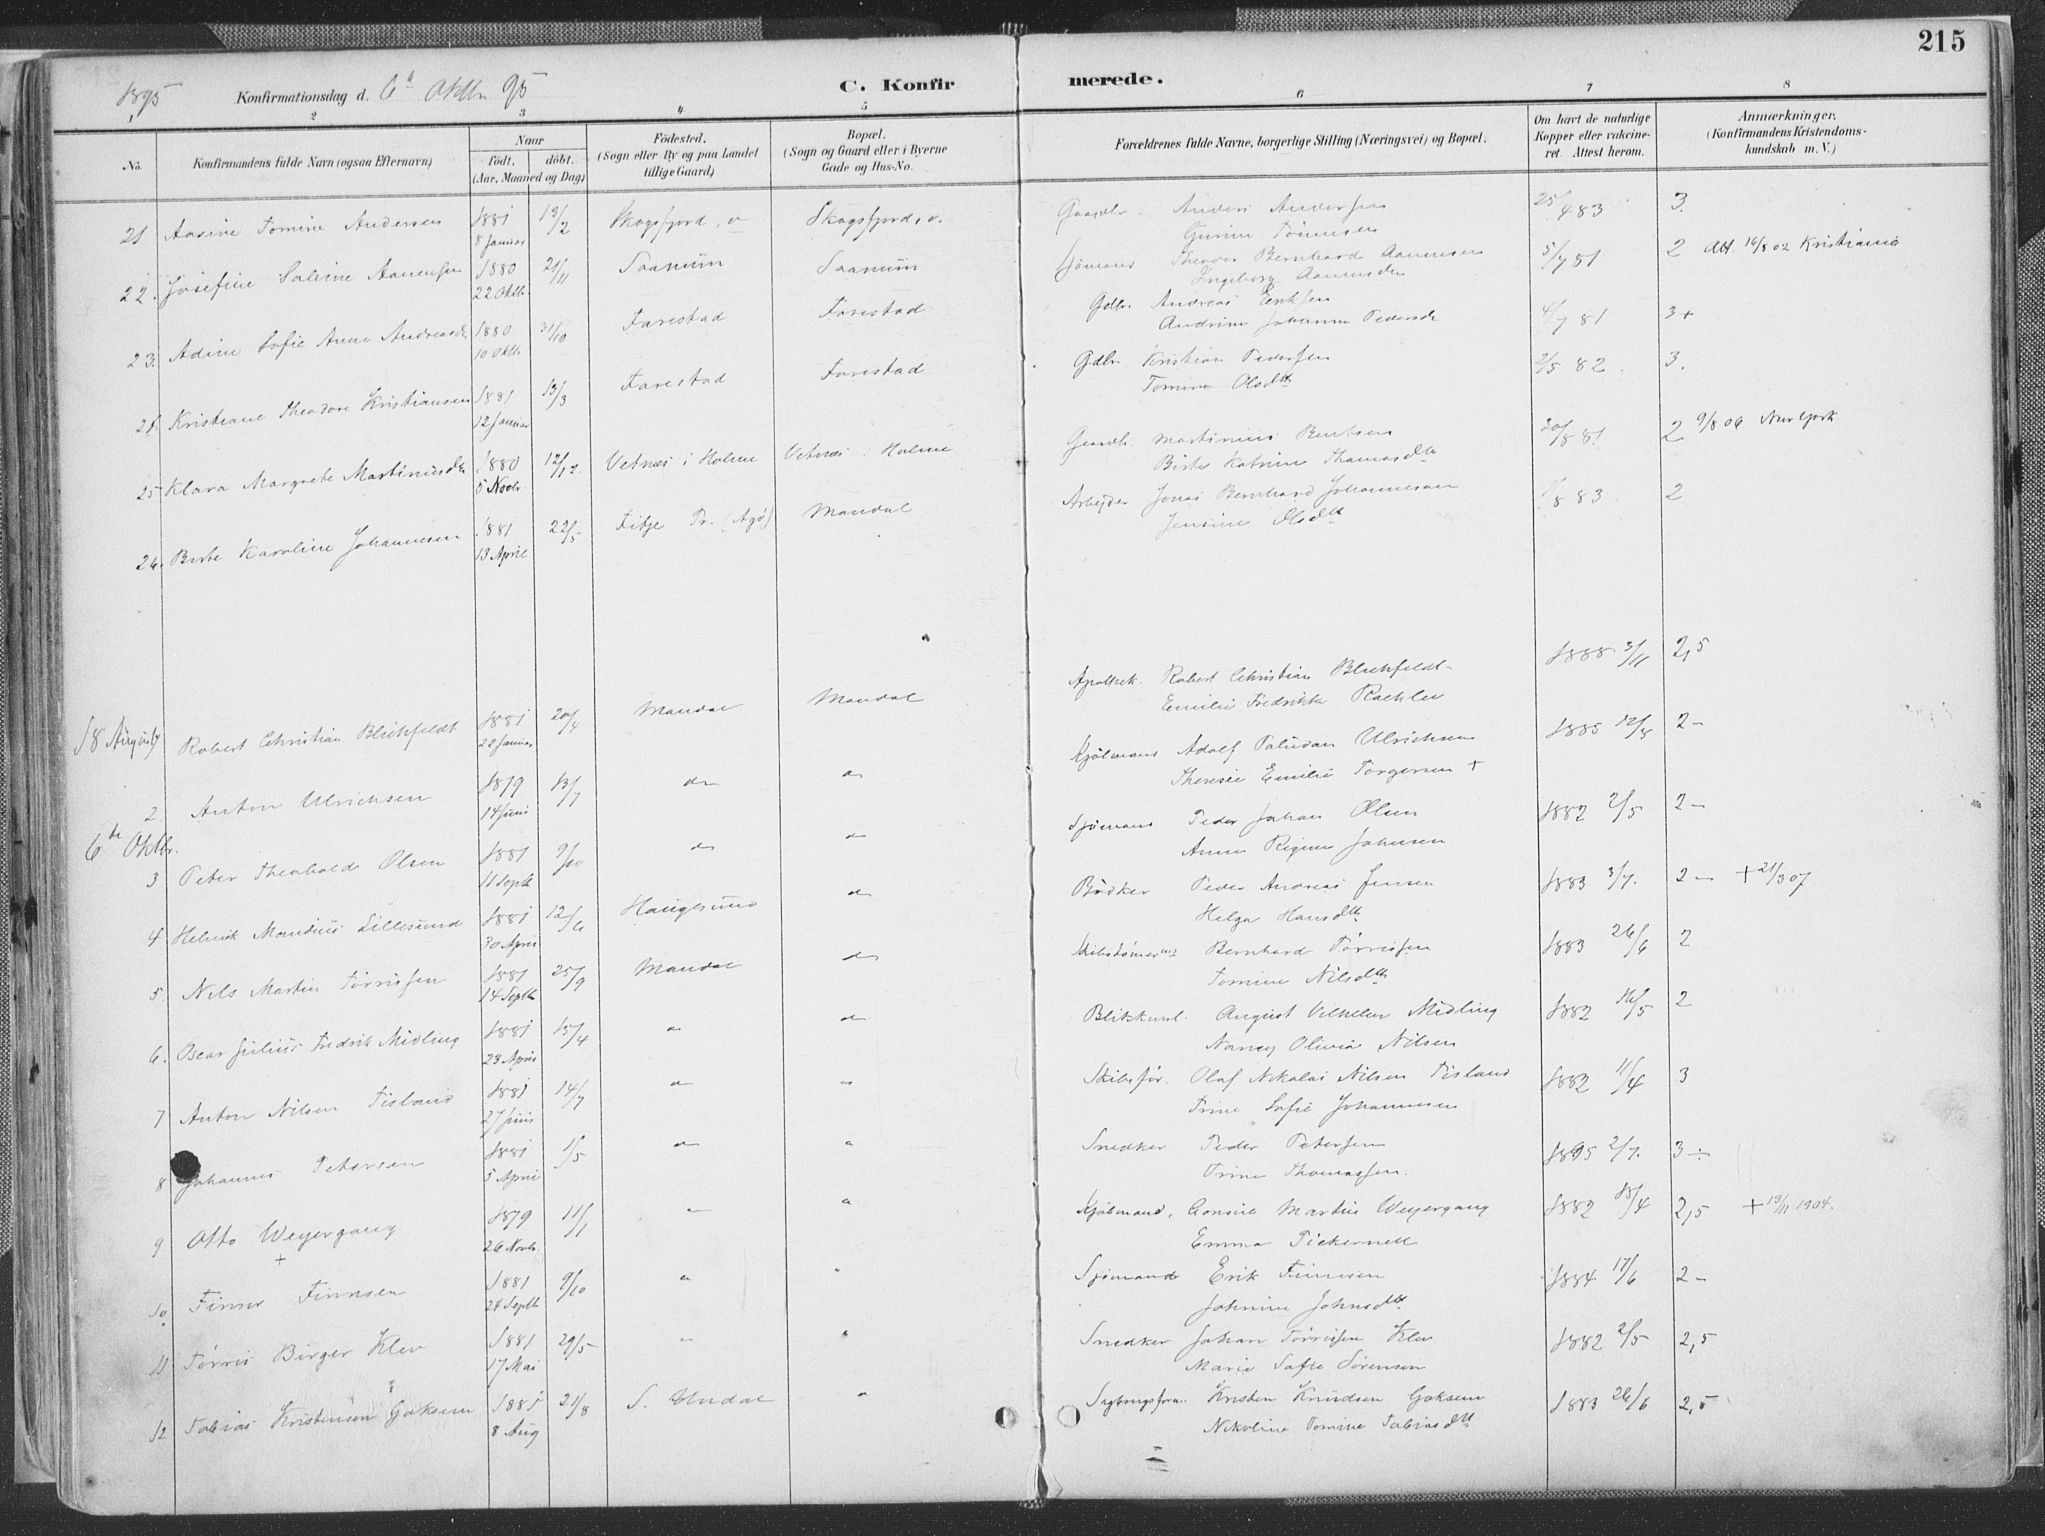 215
1895 Konfirmationsdag d. 6te Oktbr 95 C. Konfirmerede.
1 2 3 4 5 6 7 8
No. Konfirmandens fulde Navn (ogsaa Efternavn) Naar født, døbt. (Aar, Maaned og Dag) Fødested. (Sogn eller By og paa Landet tillige Gaard) Bopæl. (Sogn og Gaard eller i Byerne Gade og Hus-No. Forældrenes fulde Navne, borgerlige Stilling (Næringsvei) og Bopæl. Om havt de naturlige Kopper eller vakcineret. Attest herom. Anmærkninger. (Konfirmandens Kristendomskundskab m. V.)
21 Aasine Tomine Andersen 1881 13/2 Skogsfjord, Skogsfjord, Gaardbr. Anders Andersen 25/4 83 3.
8 Januar Gurine Tönnesen
22. Josefine Sabine Aanensen 1880 21/11 Saanum Saanum Sjömand Theodor Bernhard Aanensen 5/7 81 2 Att 16/8 02 Kristiania
22 Oktb. Ingeborg
23. Adine Sofie Anne Andreasdr 1880 31/10 Farestad Farestad Gdbr. Andreas Eriksen 4/7 81 3+
10 Oktb Andrine Johanne Pedersdr
24. Kristiane Theodore Kristiansen 1881 13/3 Farestad Farestad Gdbr. Kristian Pedersen 2/5 82. 3.
12 Januar Tomine Olsdtr
25 Klara Margrete Martinusdtr 1880 12/12. Vetnæs i Holme Vetnæs i Holme Gaardb. Martinius Berntsen 20/8 81. 2 9/8 06 New York
5 Novbr Birte Katrine Thomasdtr
26. Berte Karoline Johannesen 1881 22/5 Fitje Pr. (Agö) Mandal Arbejder Jonas Bernhard Johannesen 8 83 2
13 April Jensine Olsdtr
18 August Robert Christian Blichfeldt 1881 20/4 Mandal Mandal Apothek. Robert Christian Blichfeldt 1888 3/11 2,5
22 Januar Emilie Fredrikke
2 Anton Ulrichsen 1879 13/7 do do Kjölmand Adolf Paludan Ulrichsen 1885 12/8 2-
14 Juni Theresie Emilie Torgersen +
6te Oktbr.
3 Peter Theobald Olsen 1881 9/10 do do Sjömand Peder Johan Olsen 1882 2/5 2-
11 Septb Anne Regine Johnsen
4 Helmik Mandius Lillesund 1881 12/6 Haugesund do Bödker Peder Andreas Jensen 1883 3/7. 2- + 21/3 07
30 April Helga Hansdtr
5. Nils Martin Törrisen 1881 25/9 Mandal do Skibstömrmd Bernhard Törrissen 1883 26/6 2
14 Septb Tomine Nilsdtr
6. Oscar Julius Fredrik Midling 1881 15/4 do do Blikkensl. August Vilhelm Midling 1882 16/5 2
23 April Nancy Olivia Nilsen
7 Anton Nilsen Tisland 1881 14/7 do do Skibsför. Olaf Nikolai Nilsen Tisland 1882 11/4 3
27 Juni Trine Sofie Johannesen
8 Johannes Petersen 1881 1/5 do " Snedker Peder Petersen 1895 2/7. 3÷
5 April Trine Thomassen.
9 Otto Weyergang 1879 11/1 " " Kjöbmand, Consul Martin Weyergang 1882 15/4 2,5 + 19/11 1904.
+ 26 Novb. Emma Pickernell
10. Finn Finnsen 1881 9/10 " " Sjömand Erik Finnsen 1884 17/6 2-
24 Septb Johnine Johnsdtr
11 Törris Birger Klev 1881 29/5 " " Snedker Johan Törrissen Klev 1882 2/5 2,5
17 Mai Marie Sofie Sörensen
12 Tobias Kristensen Goksem 1881 21/8 S. Undal " Kristen Knudsen Goksem 1883 26/6 2,5
8 Aug Nikoline Tomine Tobiasdtr